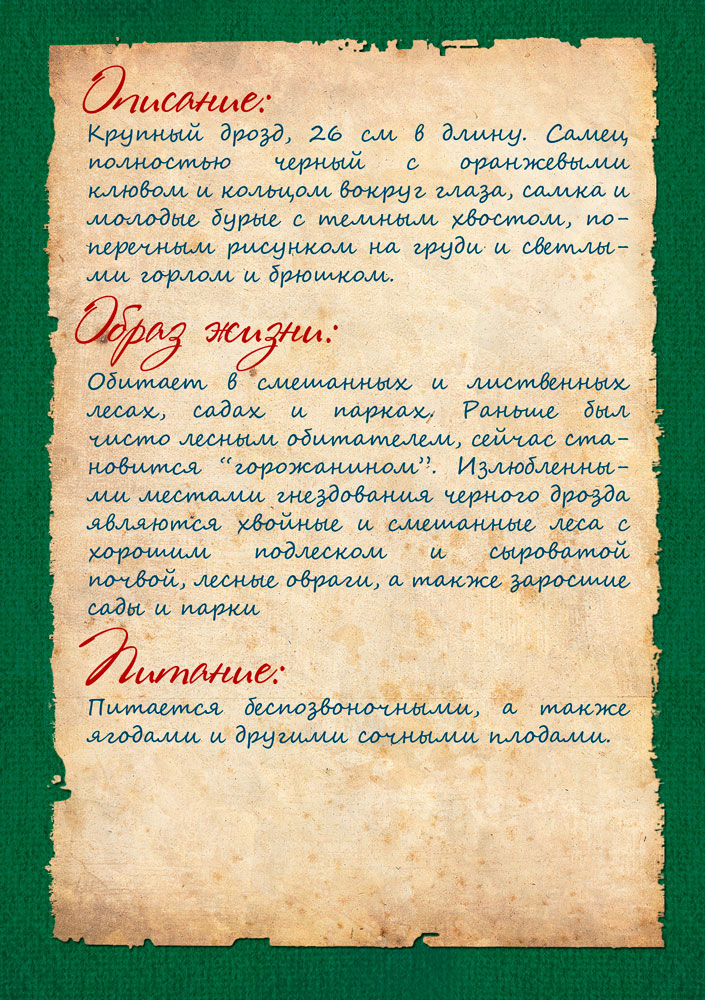 Описание:
Крупный дрозд, 26 см в длину. Самец
полностью черный с оранжевыми
клювом и кольцом вокруг глаза, самка и
молодые бурые с темным хвостом, по-
перечным рисунком на груди и светлы-
ми горлом и брюшком.
Образ жизни:
Обитает в смешанных и лиственных
лесах, садах и парках. Раньше был
чисто лесным обитателем, сейчас ста-
новится “горожанином”. Излюбленны-
ми местами гнездования черного дрозда
являются хвойные и смешанные леса с
хорошим подлеском и сыроватой
почвой, лесные овраги, а также заросшие
сады и парки
Питание:
Питается беспозвоночными, а также
ягодами и другими сочными плодами.